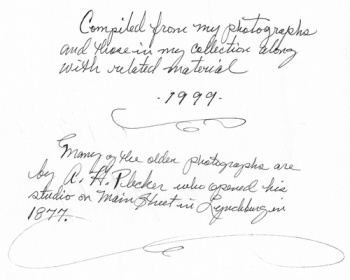 Compiled from my photographs
and those in my collection along
with related material
·1999·
Many of the older photographs are
by A. H. Plecker who opened his
studio on Main Street in Lynchburg in
1877.